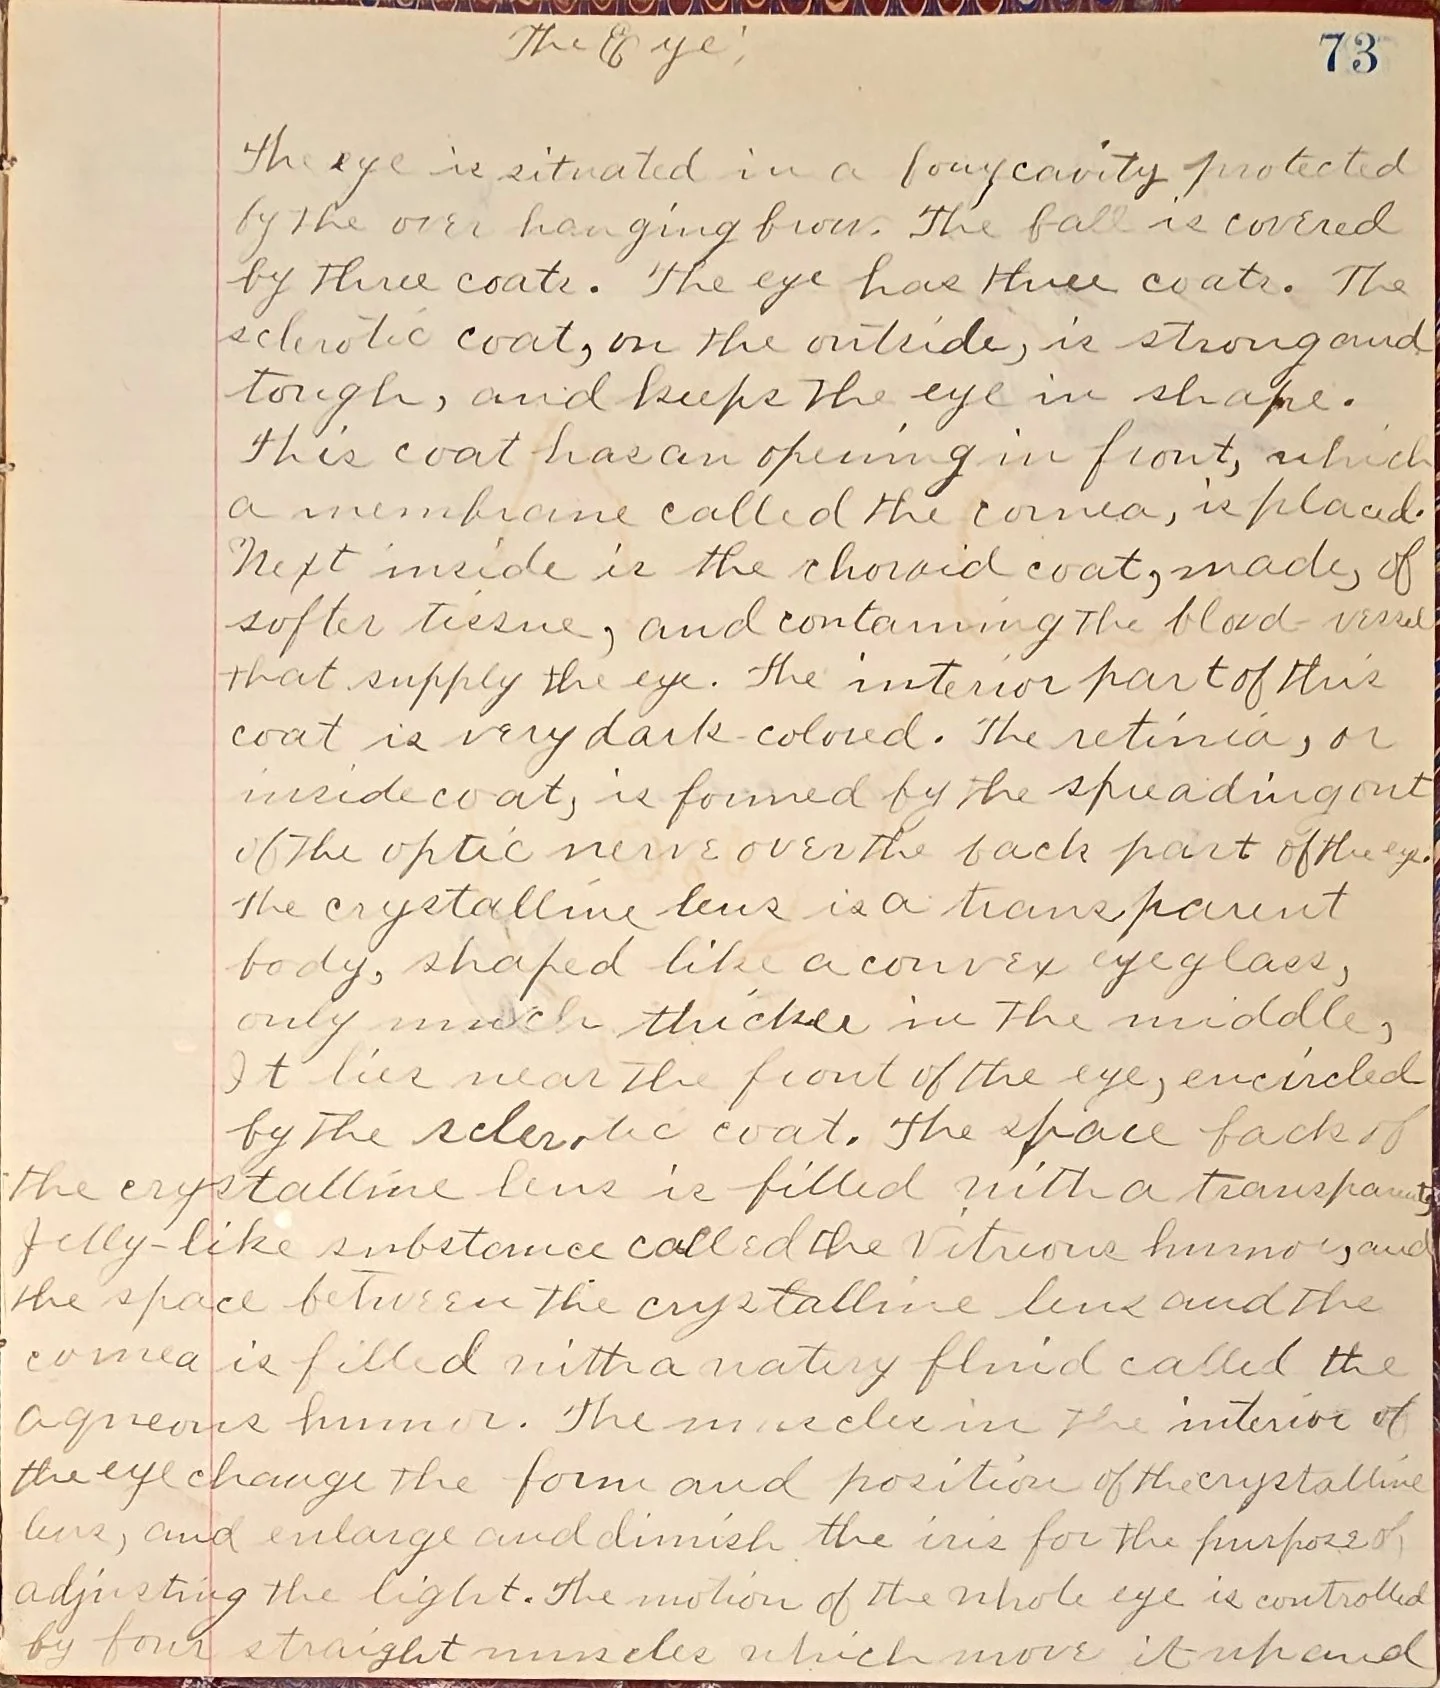 The Eye.
73
The eye is situated in a bony cavity protected
by the over hanging brow. The ball is covered
by three coats. The eye has three coats. The
sclerotic coat, on the outside, is strong and
tough, and keeps the eye in shape.
This coat has an opening in front, which
a membrane called the cornea, is placed.
Next inside is the choroid coat, made, of
softer tissue, and containing the blood-vessel
that supply the eye. The interior part of this
coat is very dark-colored. The retinia, or
inside coat, is formed by the spreading out
of the optic nerve over the back part of the eye.
The crystalline lens is a transparent
body, shaped like a convex eyeglass,
only much thicker in the middle,
It lies near the front of the eye, encircled
by the sclerotic coat. The space back of
the crystalline lens is filled with a transparent,
Jelly-like substance called the Vitreous humor, and
the space between the crystalline lens and the
cornea is filled with a watery fluid called the
aqneous humor. The muscles in the interior of
the eye change the form and position of the crystalline
lens, and enlarge and dimish the iris for the purpose of
adjusting the light. The motion of the whole eye is controlled
by four straight muscles which move it up and